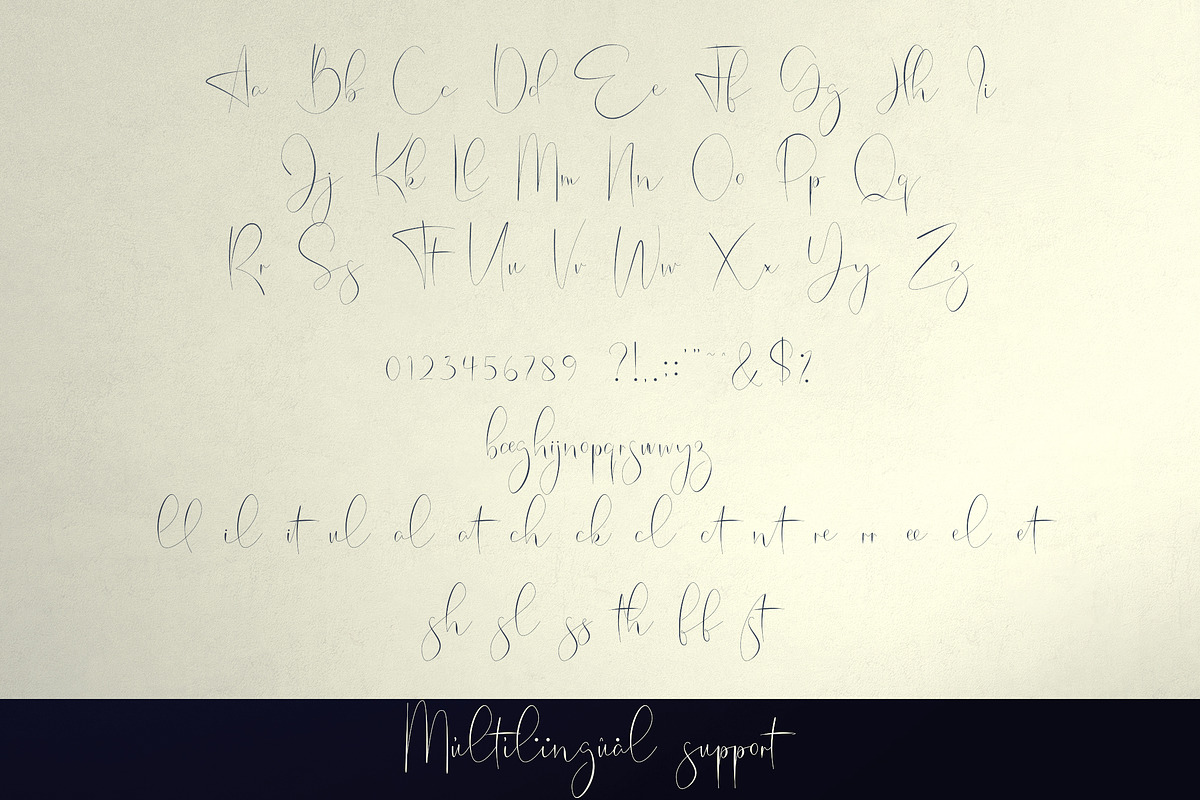 Aa Bb Cc Dd Ee Ff Gg Hh Ii
Jj Kk Ll Mm Nn Oo Pp Qq
Rr Ss Tt Uu Vv Ww Xx Yy Zz
0123456789 ?!,.;:'"~^&$%
bœghijnopqrsuwyz
ll il it ul al at ch ck cl ct nt re rr ee el et
sh sl ss th ff st
Múltilïingûàl support